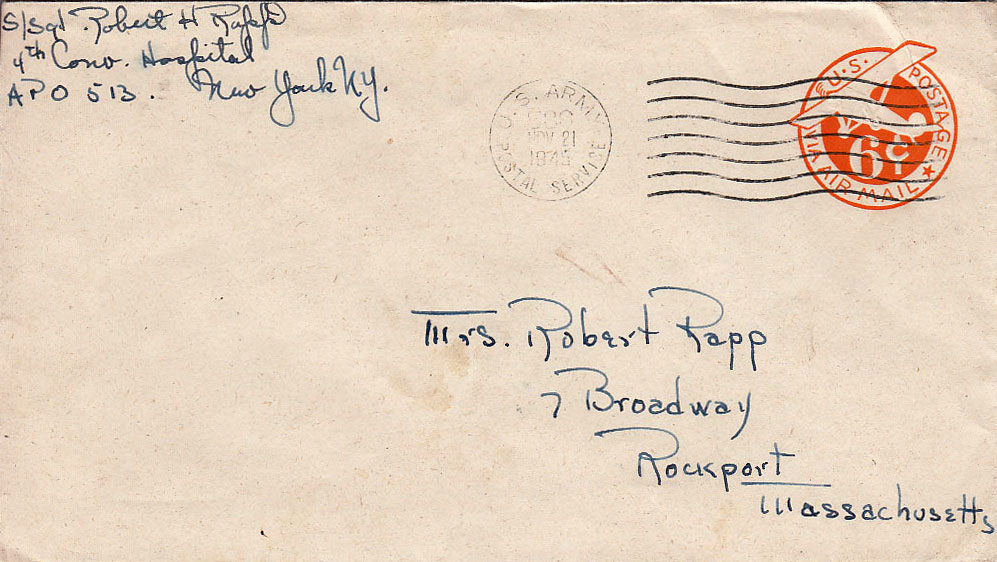 S/Sgt Robert H Rapp
4th Conv. Hospital
APO 513. New York NY.
U.S. ARMY
NOV 21
1945
POSTAL SERVICE
U.S. POSTAGE
6¢
VIA AIR MAIL
Mrs. Robert Rapp
7 Broadway
Rockport
Massachusetts